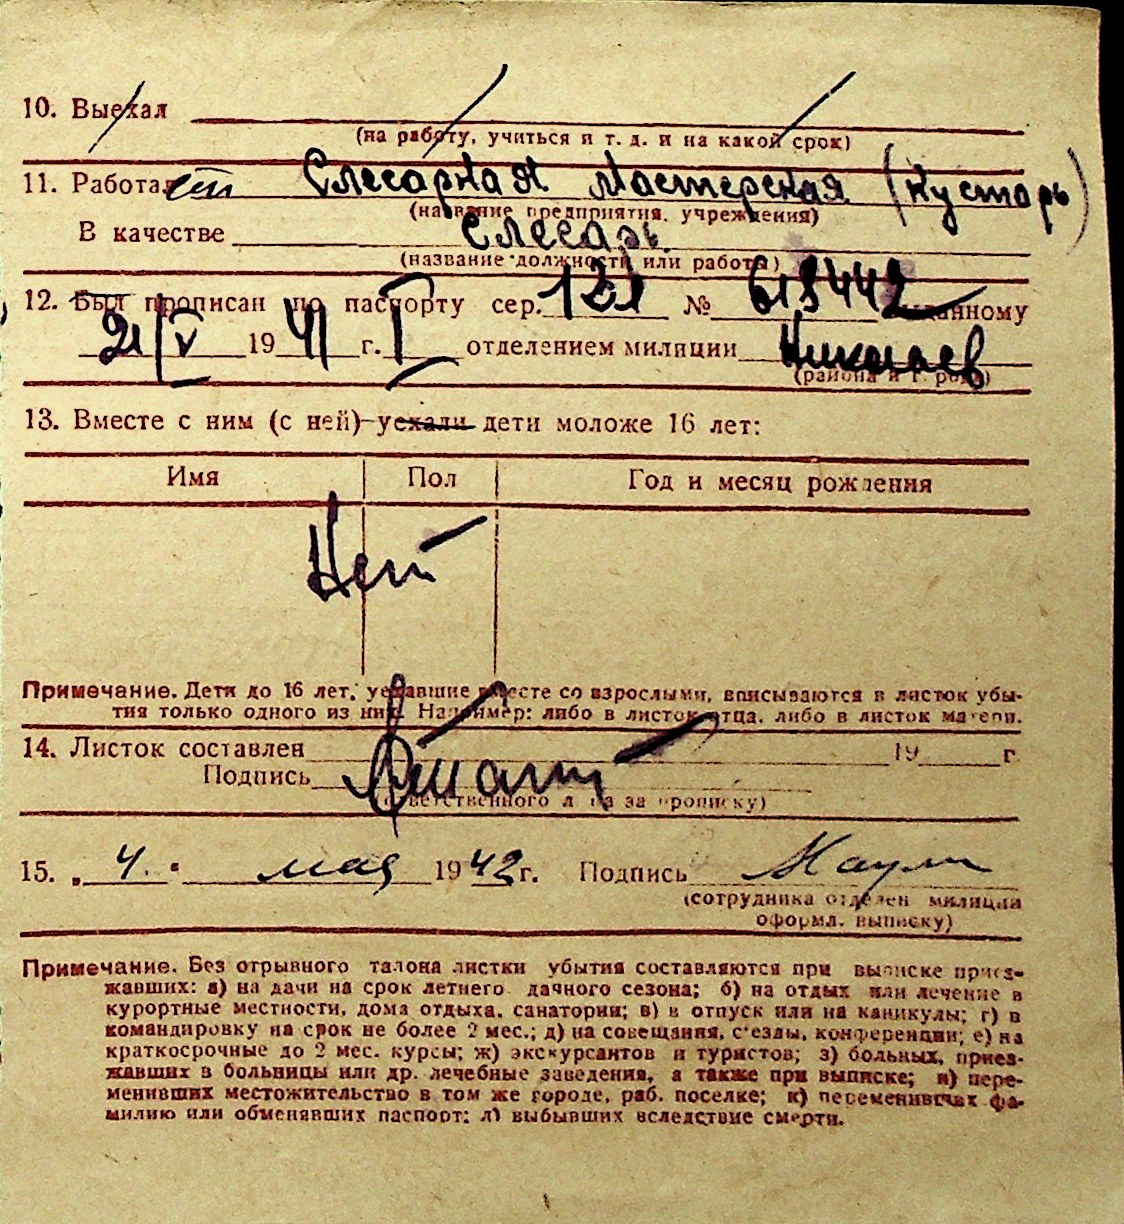 10. Выехал
(на работу, учиться и т. д. и на какой срок)
11. Работает Слесарная Мастерская (Кустарь)
(название предприятия, учреждения)
В качестве слесарь
(название должности или работы)
12. Был прописан по паспорту сер. № выданному
21/V 1941 г. I отделением милиции Николаев
(района и г. рода)
13. Вместе с ним (с ней) уехали дети моложе 16 лет:
Имя Пол Год и месяц рождения
Нет
Примечание. Дети до 16 лет, уехавшие вместе со взрослыми, вписываются в листок убы-
тия только одного из них. Например: либо в листок отца, либо в листок матери.
14. Листок составлен 19 г
Подпись
(ответственного лица за прописку)
15. „4." мая 1942 г. Подпись
(сотрудника отделен милиции
оформл. выписку)
Примечание. Без отрывного талона листки убытия составляются при выписке приез-
жавших: а) на дачи на срок летнего дачного сезона; б) на отдых или лечение в
курортные местности, дома отдыха, санатории; в) в отпуск или на каникулы; г) в
командировку на срок не более 2 мес.; д) на совещания, с'езды, конференции; е) на
краткосрочные до 2 мес. курсы; ж) экскурсантов и туристов; з) больных, приез-
жавших в больницы или др. лечебные заведения, а также при выписке; и) пере-
менивших местожительство в том же городе, раб. поселке; к) переменивших фа-
милию или обменявших паспорт; л) выбывших вследствие смерти.